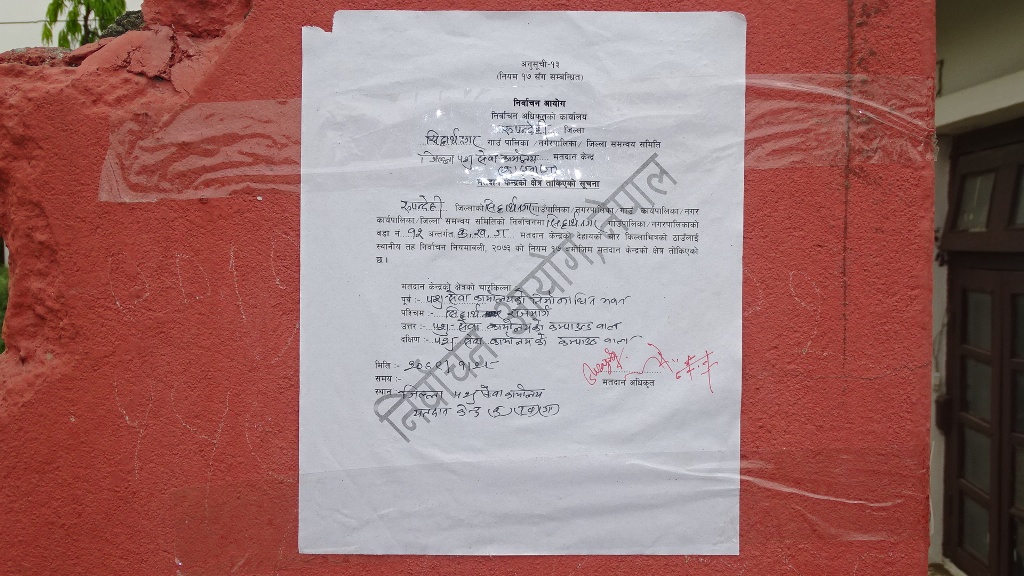 अनुसूची-१३
(नियम १७ सँग सम्बन्धित)
निर्वाचन आयोग
निर्वाचन अधिकृतको कार्यालय
रुपन्देही जिल्ला
सिद्धार्थनगर गाउँ पालिका /नगरपालिका/ जिल्ला समन्वय समिति
जिल्ला पशु सेवा कार्यालय मतदान केन्द्र
मतदान केन्द्रको क्षेत्र तोकिएको सूचना
रुपन्देही जिल्लाको सिद्धार्थनगर गाउँपालिका/नगरपालिका/गाउँ कार्यपालिका/नगर
कार्यपालिका/जिल्ला समन्वय समितिको निर्वाचनमा सिद्धार्थनगर गाउँपालिका/नगरपालिकाको
वडा नं. १२ अन्तर्गत क, ख, ग मतदान केन्द्रको देहायका चार किल्लाभित्रको ठाउँलाई
स्थानीय तह निर्वाचन नियमावली, २०७३ को नियम १७ बमोजिम मतदान केन्द्रको क्षेत्र तोकिएको
छ ।
मतदान केन्द्रको क्षेत्रको चारकिल्ला
पूर्व :- पशु सेवा कार्यालयको निर्माणाधिन भवन
पश्चिम :- सिद्धार्थ राजमार्ग
उत्तर :- पशु सेवा कार्यालयको कम्पाउण्ड वाल
दक्षिण :- पशु सेवा कार्यालयको कम्पाउण्ड वाल
मिति :-
समय :-
स्थान :- जिल्ला पशु सेवा कार्यालय
मतदान केन्द्र
मतदान अधिकृत
निर्वाचन आयोग, नेपाल